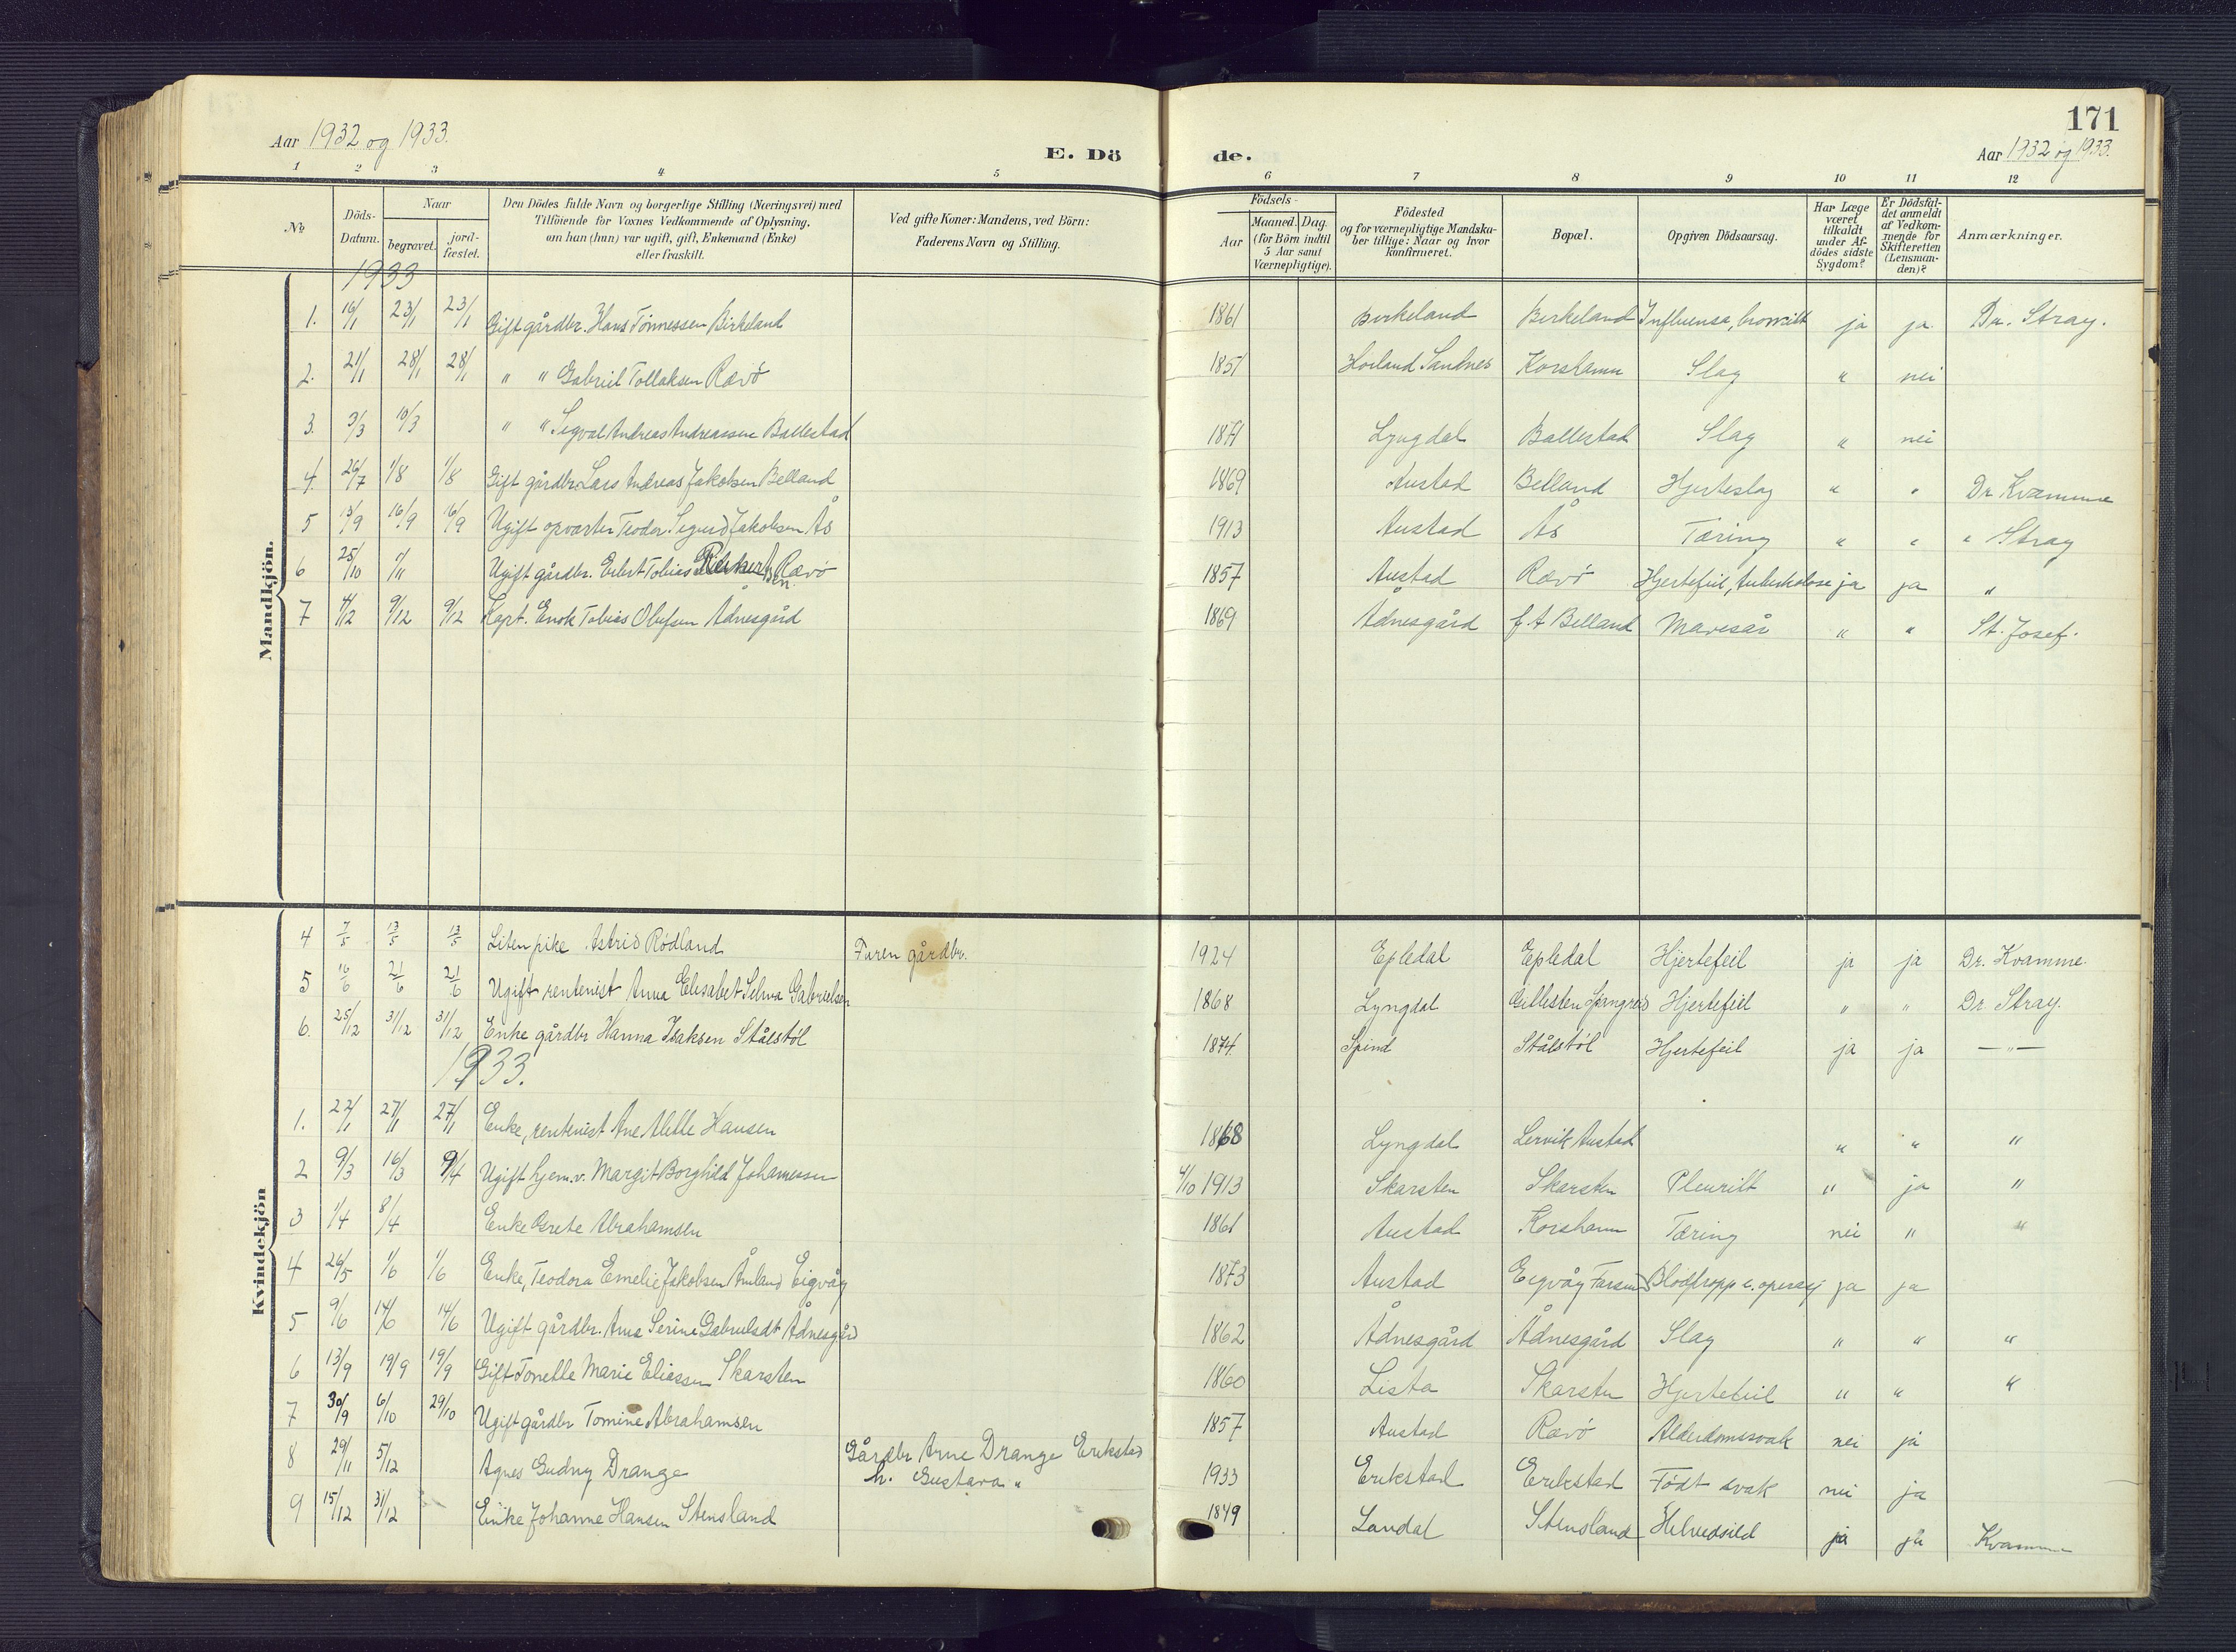 171
Aar 1932 og 1933.
E. Dö
de.
Aar 1932 og 1933.
1 2 3 4 5 6 7 8 9 10 11 12
No
Döds-Datum.
Naar
begravet.
jord-fæstet.
Den Dödes fulde Navn og borgerlige Stilling (Næringsvei) med
Tilföiende for Voxnes Vedkommende af Oplysning.
om han (hun) var ugift, gift, Enkemand (Enke)
eller fraskilt.
Ved gifte Koner: Mandens, ved Börn:
Faderens Navn og Stilling.
Födsels-
Aar
Maaned. Dag.
(for Börn indtil
5 Aar samt
Værnepligtige).
Födested
og for værnepligtige Mandska-
ber tillige: Naar og hvor
konfirmeret.
Bopæl.
Opgiven Dödsaarsag.
Har Læge
været
tilkaldt
under Af-
dödes sidste
Sygdom?
Er Dödsfal-
det anmeldt
af Vedkom-
mende for
Skifteretten
(Lensman-
den)?
Anmærkninger.
Mandkjön.
1933
1. 16/1 23/1 23/1 Gift gårdbr. Hans Tönnessen Birkeland 1861 Birkeland Birkeland Influensa, bronkitt ja ja Dr. Stray.
2. 21/1 28/1 28/1 " " Gabriel Tollaksen Rævö 1851 Sandnes Korshamn Slag " nei
3. 3/3 10/3 " " Sigval Andreas Andreassen Ballestad 1871 Lyngdal Ballestad Slag " nei
4. 26/7 1/8 1/8 Gift gårdbr. Lars Andreas Jakobsen Belland 1869 Austad Belland Hjerteslag " " Dr Kvamme
5 13/9 16/9 16/9 Ugift opvarter Teodor Sigurd Jakobsen Ås 1913 Austad Ås Tæring " " " Stray
6 25/10 1/11 Ugift gårdbr. Tobias Rævö 1857 Austad Rævö Hjertefeil, tuberkulose ja ja "
7 4/12 9/12 9/12 Kapt. Enok Tobias Olufsen Ådnesgård 1869 Ådnesgård f A Belland Mavesår " " St. Josef.
Kvindekjön
4 7/5 13/5 13/5 Liten pike Astrid Rödland Faren gårdbr. 1924 Epledal Epledal Hjertefeil ja ja Dr. Kvamme.
5 16/6 21/6 21/6 Ugift rentenist Anna Elisabet Selma Gabrielsen 1868 Lyngdal Hjertefeil " " Dr Stray.
6. 25/12 31/12 31/12 Enke gårdbr Hanna Isaksen Stålstöl 1874 Spind Stålstöl Hjertefeil ja ja — " —
1933.
1. 22/1 27/1 27/1 Enke, rentenist Ane Alette Hansen 1868 Lyngdal Lervik Austad " " "
2 9/3 16/3 9/4 Ugift hjem.v. Margit Borghild Johannessen 4/10 1913 Skarsten Skarsten Pleuritt " ja "
3 1/4 8/4 Enke Grete Abrahamsen 1861 Austad Korshamn Tæring nei " "
4 26/5 1/6 1/6 Enke, Teodora Emelie Jakobsen Åmland Eigvåg 1873 Austad Eigvåg Farsund Blodpropp e. operasj ja ja
5 9/6 14/6 14/6 Ugift gårdbr. Ana Serine Gabrielsdt Ådnesgård 1862 Ådnesgård Ådnesgård Slag " " "
6 13/9 19/9 19/9 Gift Tonelle Marie Eliassen Skarsten 1860 Lista Skarsten Hjertefeil " " "
7 30/9 6/10 29/10 Ugift gårdbr Tomine Abrahamsen 1857 Austad Rævö Alderdomssvak nei ja
8 29/11 5/12 Agnes Gudny Drange Gårdbr Arne Drange Erikstad
h. Gustava " 1933 Erikstad Erikstad Födt svak nei ja
9 15/12 31/12 Enke Johanne Hansen Stensland 1849 Laudal Stensland Helvedsild ja ja Kvamme